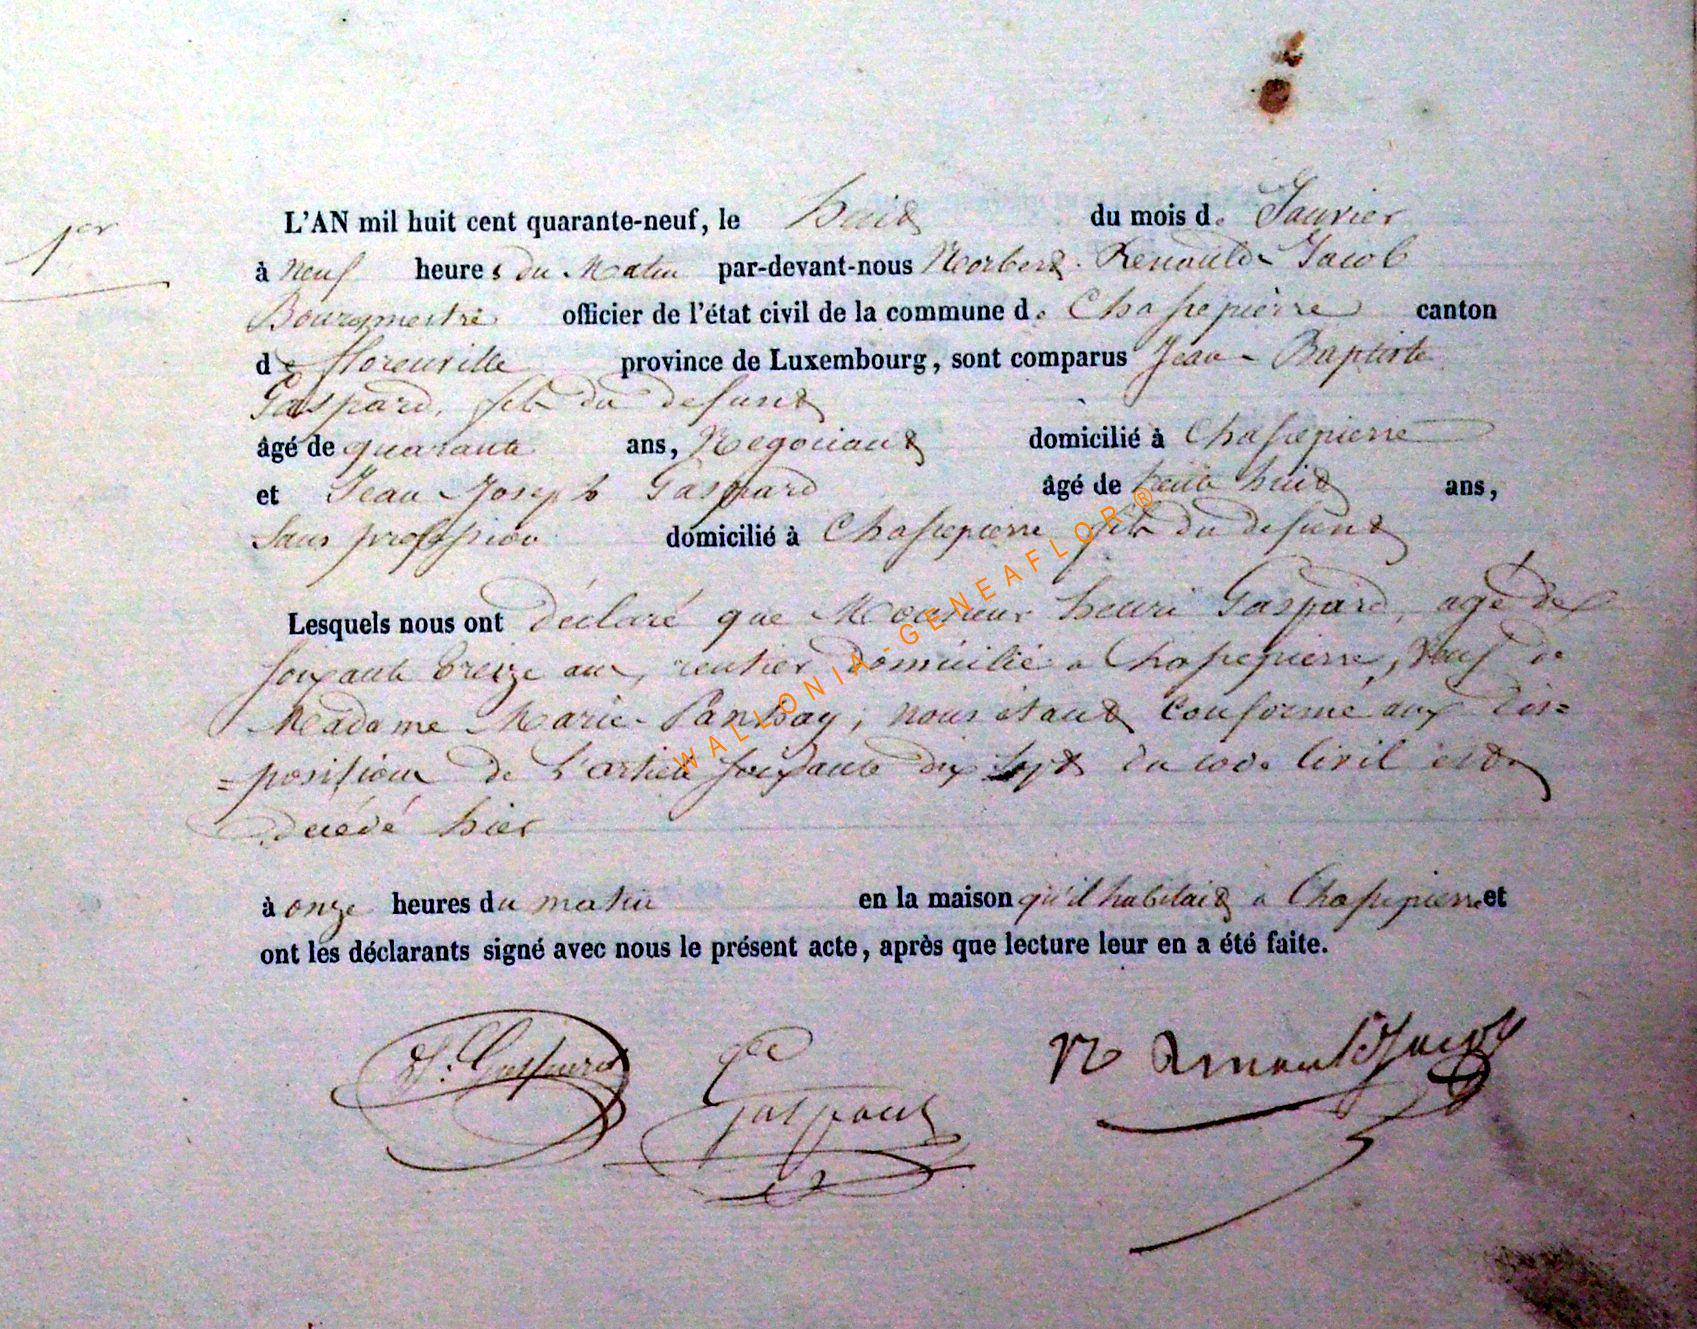 1er
L'AN mil huit cent quarante-neuf, le huit du mois de Janvier
à neuf heures du Matin par-devant-nous Norbert Renauld-Jacob
Bourgmestre officier de l'état civil de la commune de Chassepierre canton
de florenville province de Luxembourg, sont comparus Jean-Baptiste
Gaspard, fils du defunt
âgé de quarante ans, Negociant domicilié à Chassepierre
et Jean Joseph Gaspard âgé de trente huit ans,
Sans profession domicilié à Chassepierre fils du defunt
Lesquels nous ont déclaré que Monsieur henri Gaspard, agé de
soixante treize ans, rentier domicilié a Chassepierre, Veuf de
Madame Marie Pansay, nous étant Conformé aux dis=
=positions de l'article soixante dix sept du code Civil est
décédé hier
à onze heures du matin en la maison qu'il habitait a Chassepierre et
ont les déclarants signé avec nous le présent acte, après que lecture leur en a été faite.
Gaspard
Gaspard
N Renauld Jacob
WALLONIA-GENEAFLOR®